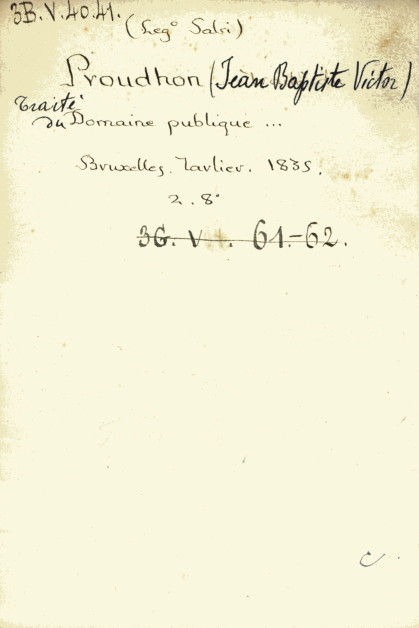 3B.V.40.41.
(Leg° Salvi)
Proudhon (Jean Baptiste Victor)
Traité
du Domaine publique ...
Bruxelles. Tarlier. 1835.
2. 8°
3G. V . 61.-62.
C.